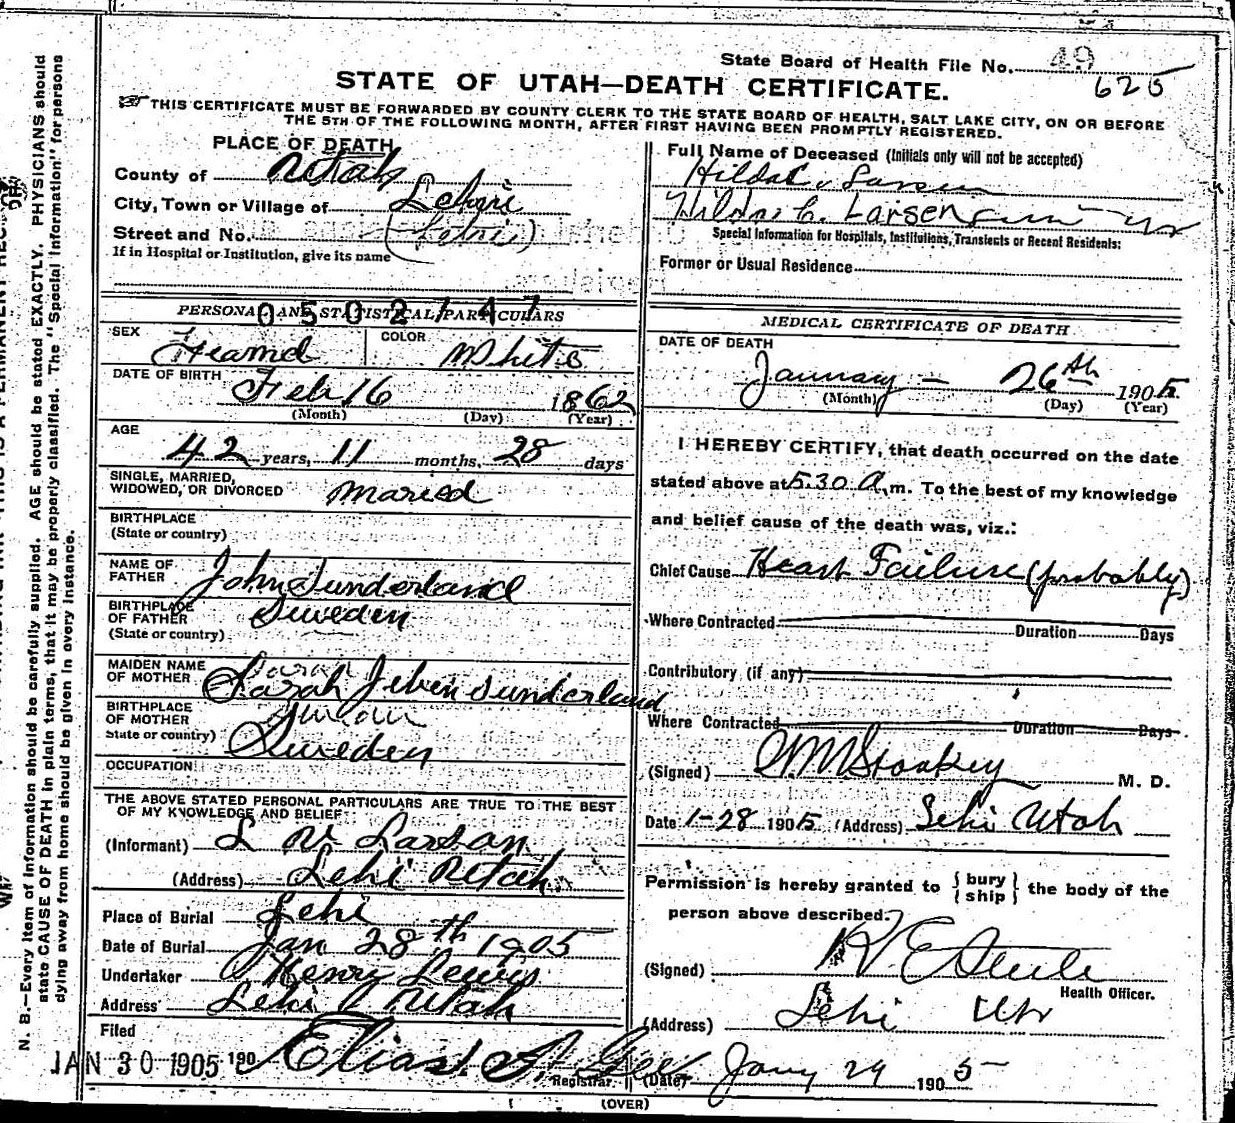 State Board of Health File No. 49
625
STATE OF UTAH—DEATH CERTIFICATE.
THIS CERTIFICATE MUST BE FORWARDED BY COUNTY CLERK TO THE STATE BOARD OF HEALTH, SALT LAKE CITY, ON OR BEFORE
THE 5TH OF THE FOLLOWING MONTH, AFTER FIRST HAVING BEEN PROMPTLY REGISTERED.
PLACE OF DEATH
County of Utah
City, Town or Village of Lehi
Street and No. (Lehi)
If in Hospital or Institution, give its name
Full Name of Deceased (Initials only will not be accepted)
Hilda C. Larsen
Hilda C. Larsen
Special Information for Hospitals, Institutions, Transients or Recent Residents:
Former or Usual Residence
PERSONAL AND STATISTICAL PARTICULARS
0502147
SEX
COLOR White
DATE OF BIRTH Feb 16 1862
(Month) (Day) (Year)
AGE
42 years, 11 months, 28 days
SINGLE, MARRIED,
WIDOWED, OR DIVORCED Maried
BIRTHPLACE
(State or country)
NAME OF
FATHER John Sunderland
BIRTHPLACE
OF FATHER Sweden
(State or country)
MAIDEN NAME
OF MOTHER Sarah Sunderland
BIRTHPLACE
OF MOTHER
State or country) Sweden
OCCUPATION
THE ABOVE STATED PERSONAL PARTICULARS ARE TRUE TO THE BEST
OF MY KNOWLEDGE AND BELIEF
(Informant) L
(Address) Lehi Utah
Place of Burial Lehi
Date of Burial Jan 28th 1905
Undertaker Henry Lewis
Address Lehi Utah
Filed
JAN 30 1905 190 Elias A. Gee
Registrar.
MEDICAL CERTIFICATE OF DEATH
DATE OF DEATH
January – 26th 1905
(Month) (Day) (Year)
I HEREBY CERTIFY, that death occurred on the date
stated above at 5.30 A.m. To the best of my knowledge
and belief cause of the death was, viz.:
Chief Cause Heart Failure (probably)
Where Contracted Duration Days
Contributory (if any)
Where Contracted Duration Days
(Signed) M. D.
Date 1-28 1905 (Address) Lehi Utah
Permission is hereby granted to {bury
ship} the body of the
person above described.
(Signed) Steele
Health Officer.
(Address) Lehi Ut
(Date) Jany 29 1905
(OVER)
N. B.—Every item of information should be carefully supplied. AGE should be stated EXACTLY. PHYSICIANS should
state CAUSE OF DEATH in plain terms, that it may be properly classified. The "Special Information" for persons
dying away from home should be given in every instance.